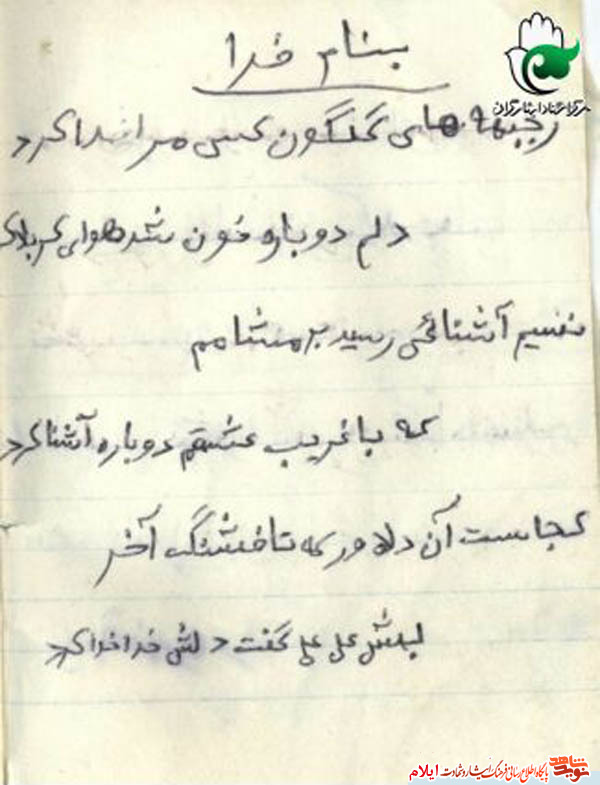 بنام خدا
ز جبهه های گلگون کسی مرا ندا کرد
دلم دوباره خون شد هوای کربلا
نسیم آشنائی رسید بر مشامم
که با غریب عشقم دوباره آشنا کرد
کجاست آن دلاور که تا فشنگ آخر
لبش علی علی گفت دلش خدا خدا کرد
مرکز اسناد ایثارگران
نوید شاهد پایگاه اطلاع رسانی فرهنگ ایثار و شهادت ایلام